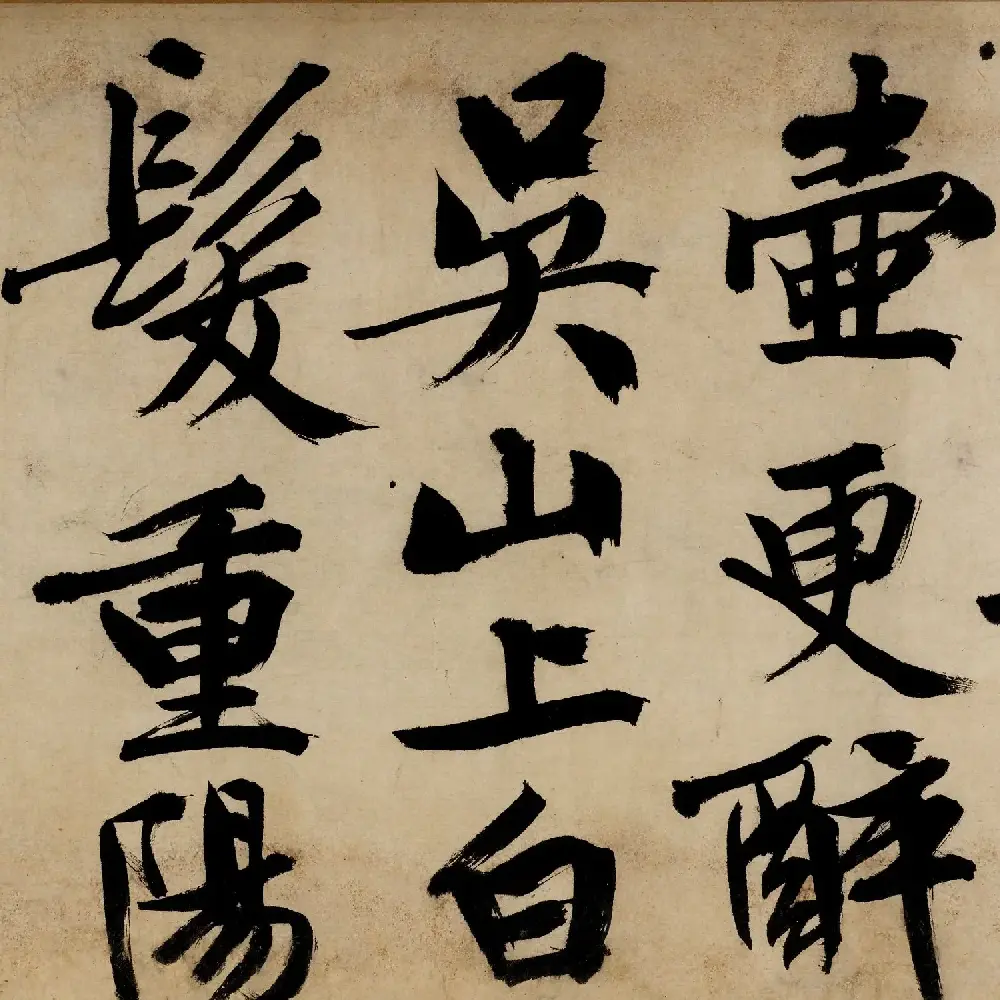 壷更醉
吳山上白
髮重陽